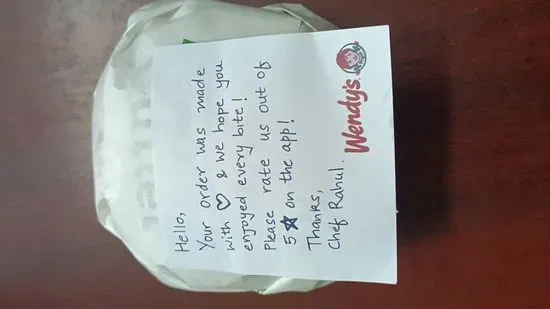 Hello,
Your order was made
with ♡ & we hope you
enjoyed every bite!
Please rate us out of
5 ★ on the app!
Thanks,
Chef Rahul.
Wendy's